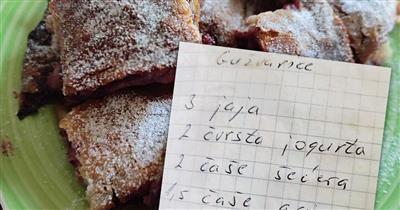 Guzvarice
3 jaja
2 čvrsta jogurta
2 čaše šećera
1,5 čaše